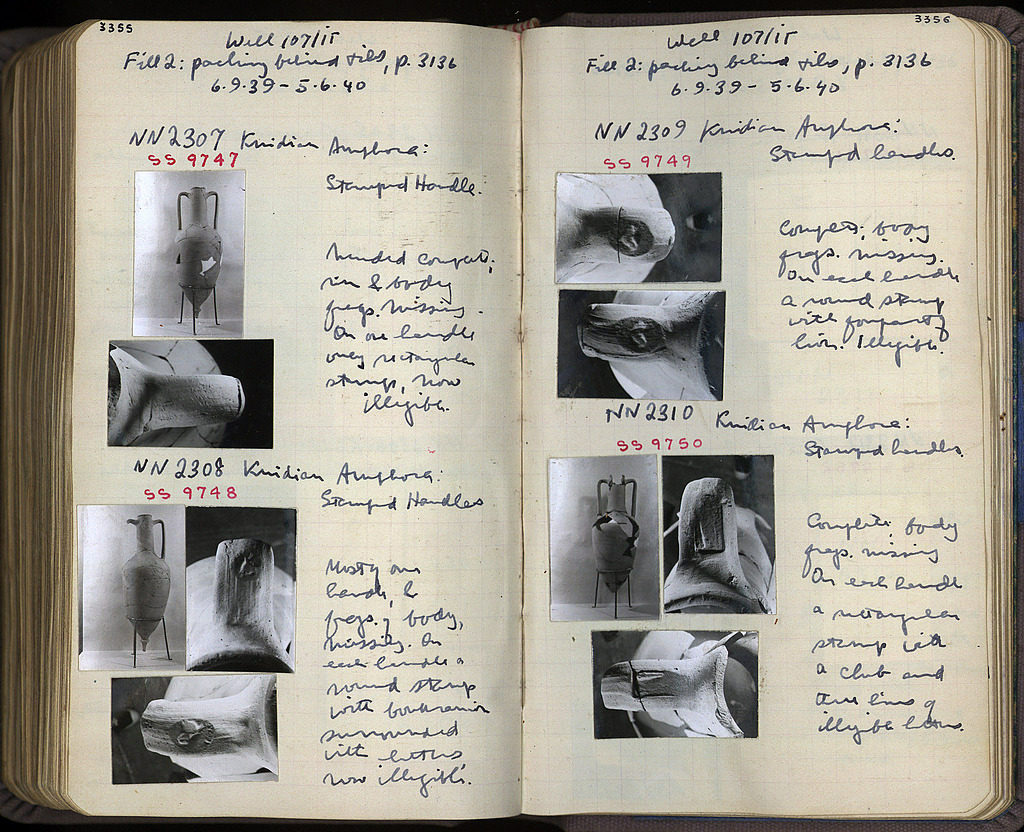 3355
Well 107/15
Fill 2: packing behind tiles, p. 3136
6.9.39 - 5.6.40
NN 2307 Knidian Amphora:
SS 9747
Stamped Handle.
Mended complete;
rim & body
frags. missing.
On one handle
only rectangular
stamp, now
illegible.
NN 2308 Knidian Amphora:
SS 9748
Stamped Handles
Mostly one
handle, &
frags. of body,
missing. On
each handle a
round stamp
with boukranion
surrounded
with letters
now illegible.
3356
Well 107/15
Fill 2: packing behind tiles, p. 3136
6.9.39 - 5.6.40
NN 2309 Knidian Amphora:
SS 9749
Stamped handles.
Complete; body
frags. missing.
On each handle
a round stamp
with forepart of
lion. Illegible.
NN 2310 Knidian Amphora:
SS 9750
Stamped handles.
Complete; body
frags. missing
On each handle
a rectangular
stamp with
a club and
three lines of
illegible letters.